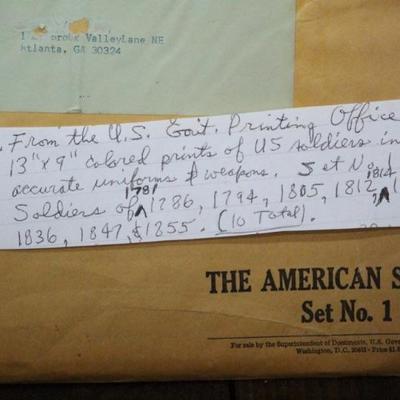 ValleyLane NE
Atlanta, GA 30324
From the U.S. Govt. Printing Office
13"x9" colored prints of US soldiers in
accurate uniforms & weapons. Set No. 1
1781 1814
Soldiers of ^ 1786, 1794, 1805, 1812, ^
1836, 1847, & 1855. (10 Total).
THE AMERICAN S
Set No. 1
For sale by the Superintendent of Documents, U.S. Gove
Washington, D.C. 20402 - Price $1.